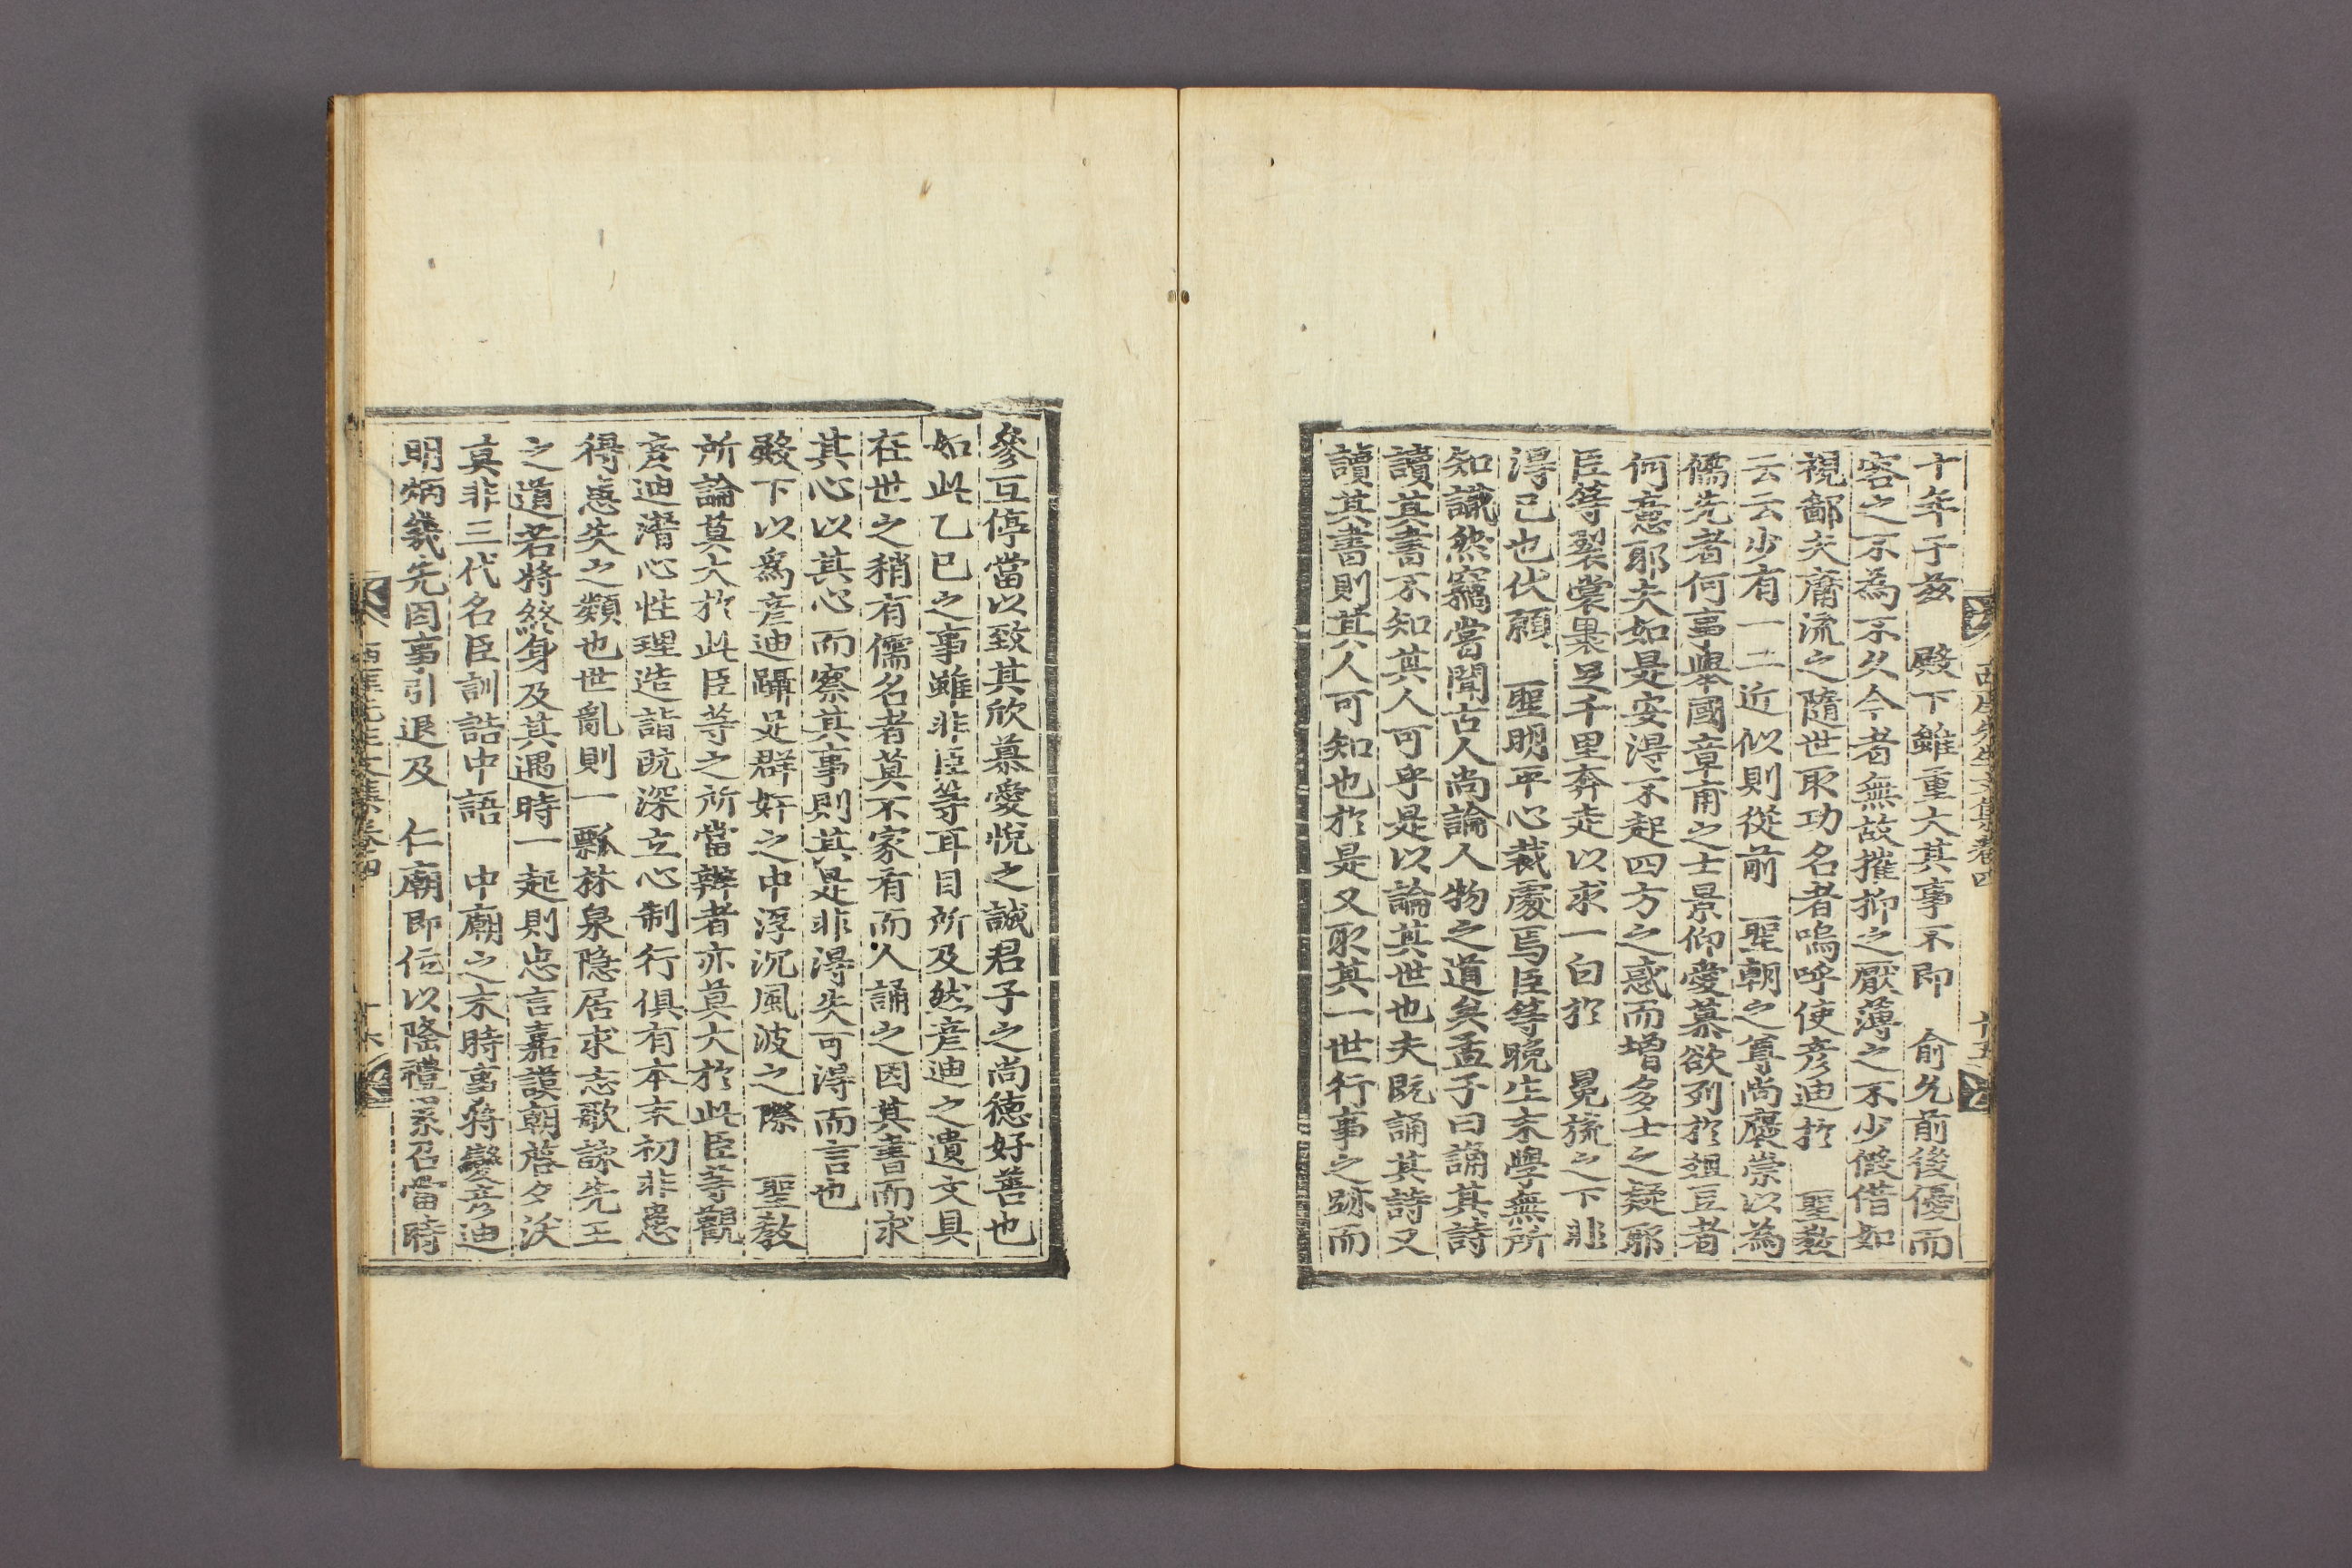 西厓先生文集卷四
十五
十年于玆　殿下雖重大其事不即　兪允前後優而
容之不爲不久今者無故摧抑之厭薄之不少假借如
視鄙夫庸流之隨世取功名者嗚呼使彦迪於　聖敎
云云少有一二近似則從前　聖朝之尊尚褒崇以爲
儒先者何事擧國章甫之士景仰愛慕欲列於俎豆者
何意耶夫如是安得不起四方之惑而增多士之疑耶
臣等裂裳裹足千里奔走以求一白於　冕旒之下非
得已也伏願　聖明平心裁處焉臣等晩生末學無所
知識然竊嘗聞古人尚論人物之道矣孟子曰誦其詩
讀其書不知其人可乎是以論其世也夫旣誦其詩又
讀其書則其人可知也於是又取其一世行事之跡而
參互停當以致其欣慕愛悅之誠君子之尚德好善也
如此乙巳之事雖非臣等耳目所及然彦迪之遺文具
在世之稍有儒名者莫不家有而人誦之因其書而求
其心以其心而察其事則其是非得失可得而言也
殿下以爲彦迪躡足群奸之中浮沉風波之際　聖敎
所論莫大於此臣等之所當辨者亦莫大於此臣等觀
彦迪潛心性理造詣旣深立心制行俱有本末初非患
得患失之類也世亂則一瓢林泉隱居求志歌詠先王
之道若將終身及其遇時一起則忠言嘉謨朝啓夕沃
莫非三代名臣訓誥中語　中廟之末時事將變彦迪
明炳幾先因事引退及　仁廟即位以隆禮累召當時
西厓先生文集卷四
十六